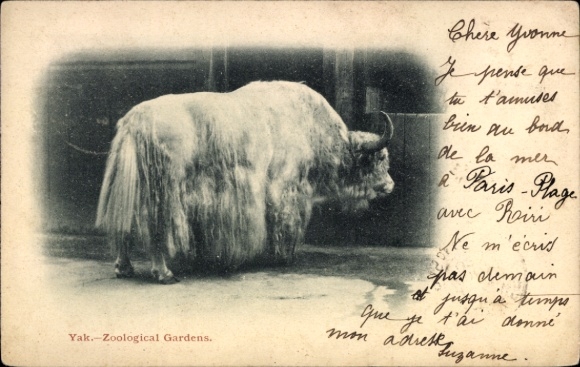 Chère Yvonne
Je pense que
tu t'amuses
bien au bord
de la mer
à Paris-Plage
avec Riri
Ne m'écris
pas demain
et jusqu'à temps
que je t'ai donné
mon adresse
Suzanne.
Yak.—Zoological Gardens.